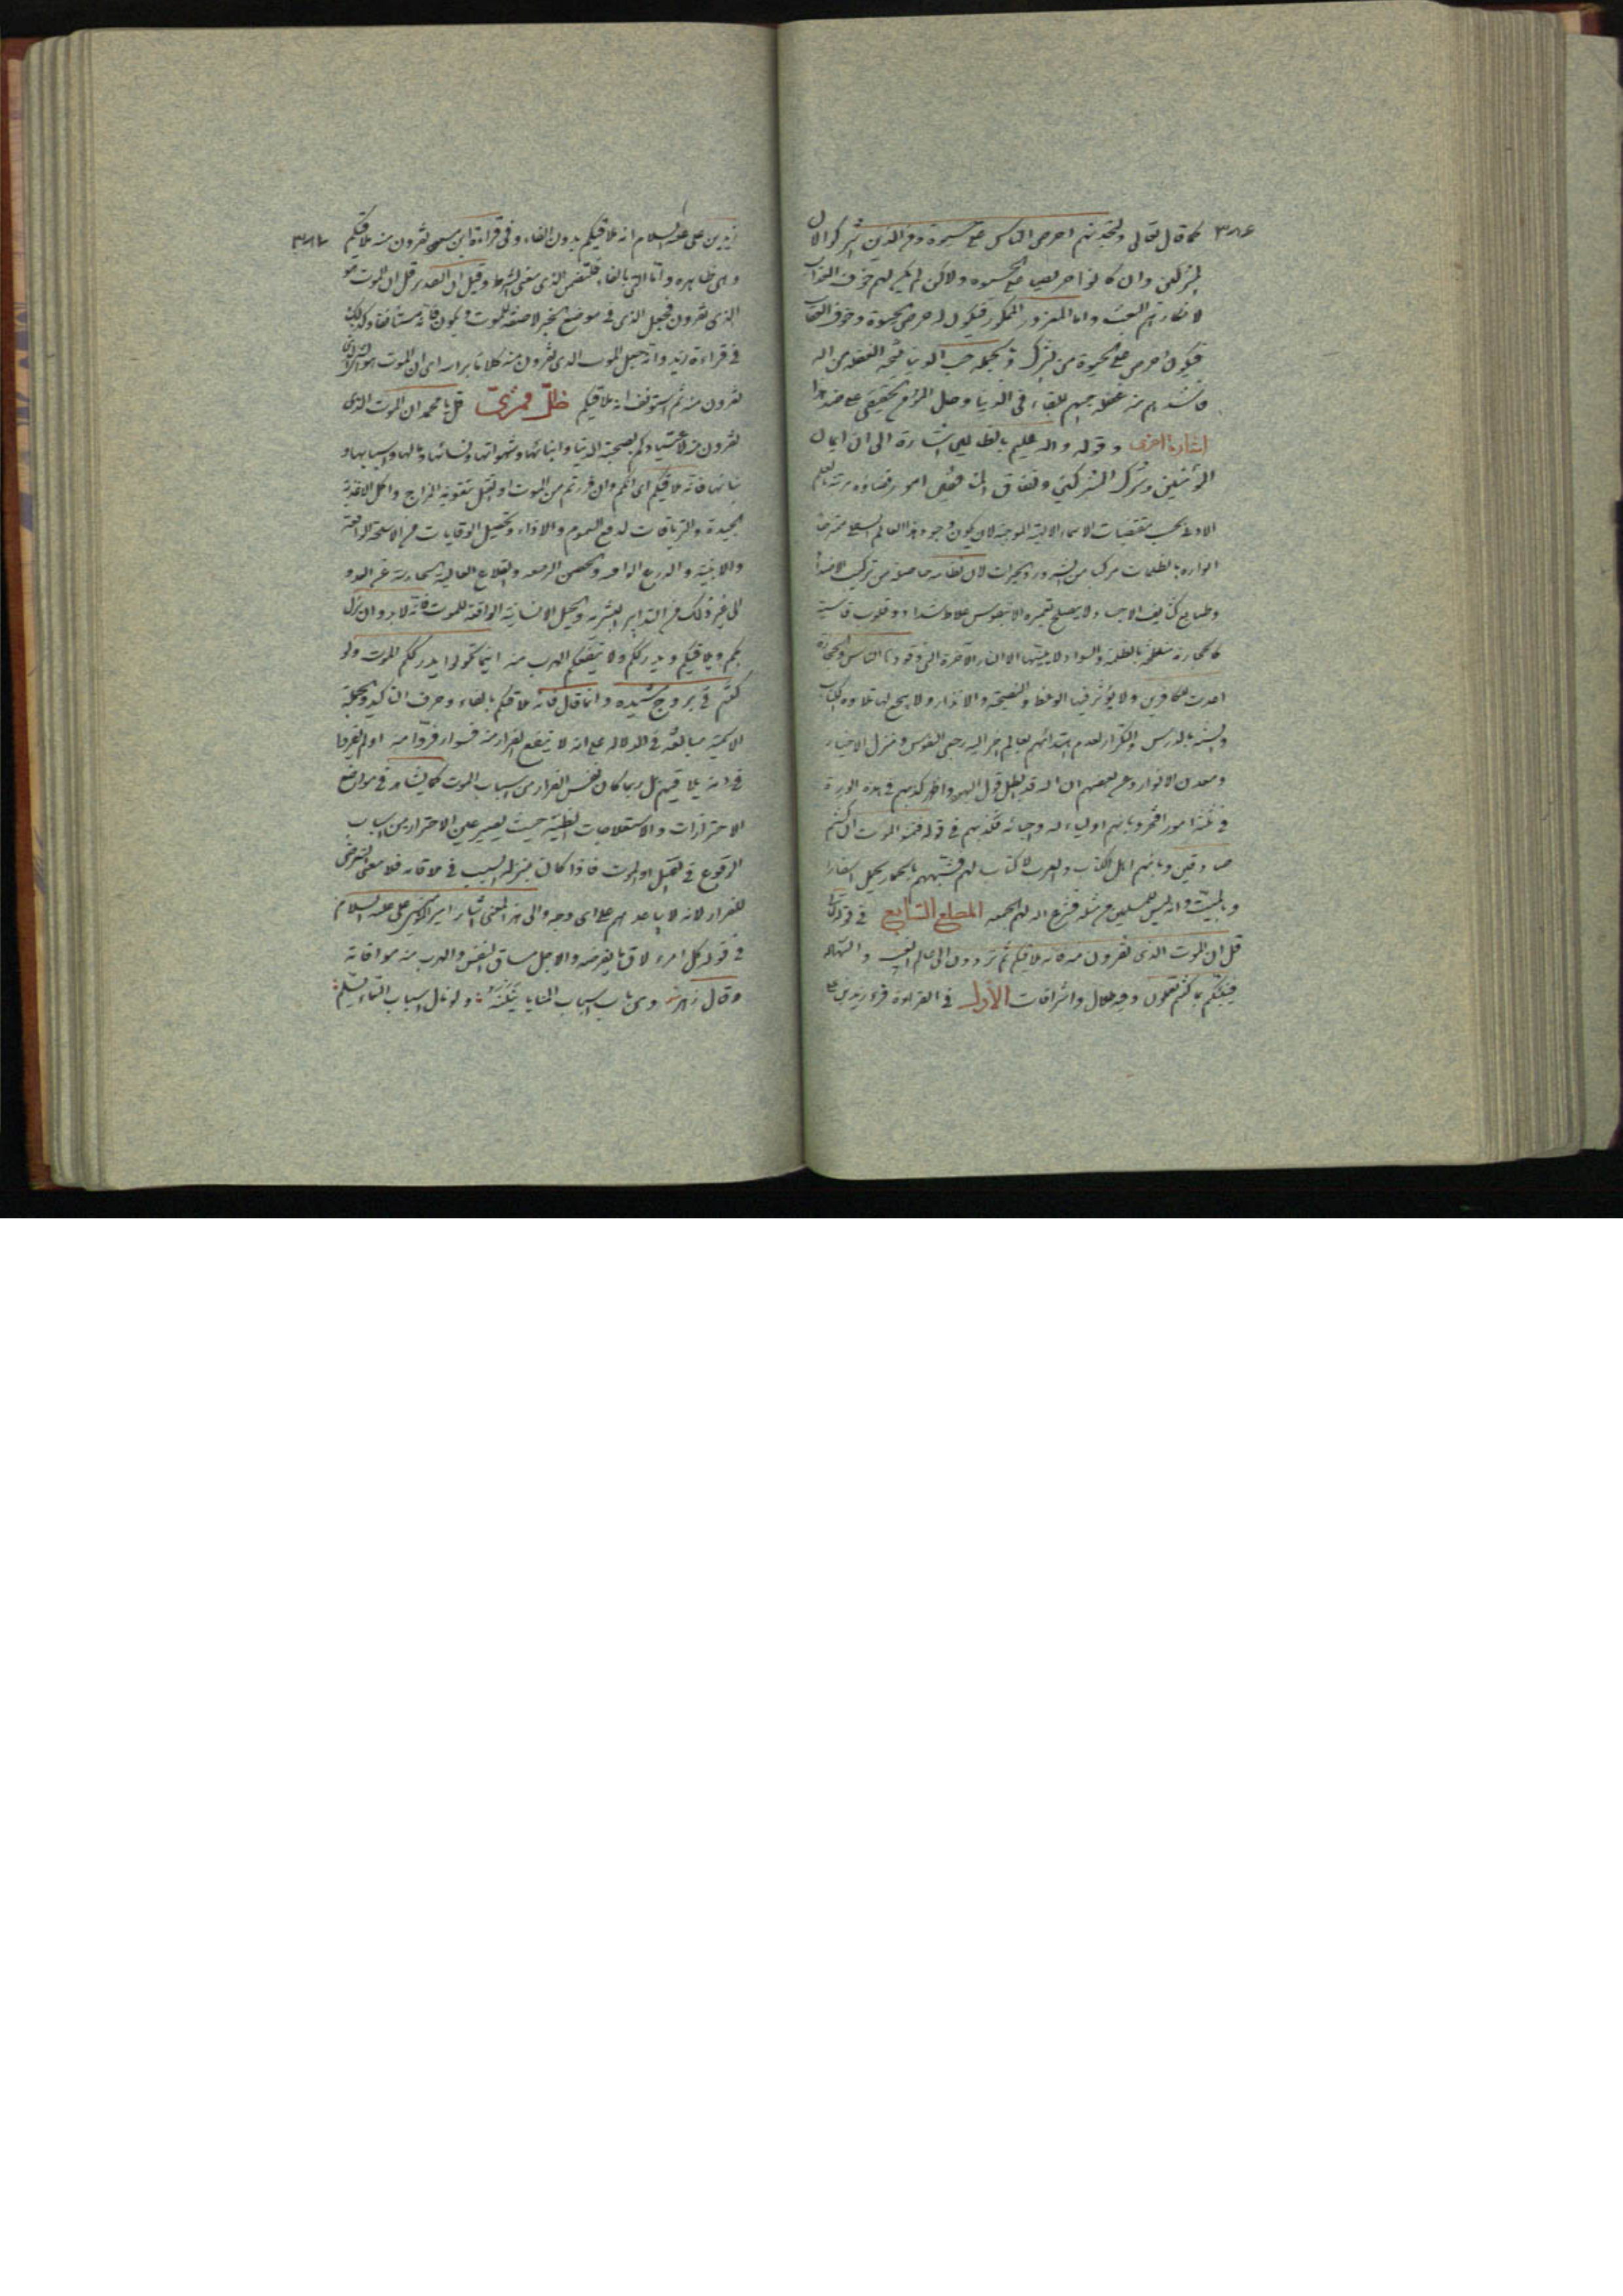 ٣٨٦
كما قال تعالى ولتجدنهم احرص الناس على حيوة ومن الذين اشركوا لان
المشركين وان كانوا حريصا على الحيوة ولاكن لم يكن لهم خوف العقاب
لانكارهم البعث واما المغرور الممكور فيكون له حرص الحيوة وخوف العقاب
فيكون احرص على الحيوة من المشرك وبالجملة حب الدنيا نتيجة الغفلة من الله
فاشدهم منه غفلة احبهم للبقاء فى الدنيا وحال المؤمن الحقيقى على ضد هذا
اشارة اخرى وقوله والله عليم بالظالمين اشارة الى ان ايمان
المؤمنين وشرك المشركين ونفاق امور قضاؤه
الاولى بحسب مقتضيات الاسماء الالهية الموجبة لان يكون وجود هذا العالم
انواره بالظلمات مركبا من الشرور والخيرات لان نظامه من تركيب الاضداد
وطبايع كثايف الاجساد ولا يصلح لتعميره الا نفوس غلاظ شداد وقلوب قاسية
كالحجارة بالظلمة والسواد لا يليقها الا النار الآخرة التى وقودها الناس والحجارة
اعدت للكافرين ولا يؤثر فيها الوعظ والنصيحة والانذار ولا ينجع لها تلاوة الكتاب
والسنة بالدرس والتكرار لعدم اهتدائهم بعالم اخر اليه رجعى النفوس ومنزل الاخيار
ومعدن الانوار وعن بعضهم ان الله قد ابطل قول اليهود واظهر كذبهم فى هذه السورة
فى ثلثة امور افتخروا بانهم اولياء لله واحبائه فكذبهم فى قوله فتمنوا الموت ان كنتم
صادقين وبانهم اهل الكتاب والعرب لا كتاب لهم فشبههم بالحمار يحمل اسفارا
وبالسبت وانه ليس للمسلمين مثله فشرع الله لهم الجمعة المطلع السابع فى قوله تعالى
قل ان الموت الذى تفرون منه فانه ملاقيكم ثم تردون الى عالم الغيب والشهادة
فينبئكم بما كنتم تعملون وفيه ظلال واشراقات الأول فى القراءة قرء زيد بن على
٣٨٧
زيد بن على عليه السلام انه ملاقيكم بدون الفاء وفى قراءة ابن مسعود تفرون منه ملاقيكم
وهى ظاهرة واما التى بالفاء فلتضمن الذى معنى الشرط وقيل ان التقدير قل ان الموت هو
الذى تفرون فجعل الذى فى موضع الخبر لا صفة للموت ويكون فانه مستأنفا وكذلك
فى قراءة زيد وانه جعل الموت الذى تفرون منه كلاما برأسه اى ان الموت هو الذى
تفرون منه ثم استونف انه ملاقيكم ظل فرشى قل يا محمد ان الموت الذى
تفرون منه لاعتيادكم بصحبة الدنيا وابنائها وشهواتها ونسائها ومالها واسبابها و
فانه ملاقيكم اى انكم وان فررتم من الموت او القتل بتقوية المزاج واكل الاغذية
الجيدة والترياقات لدفع السموم والادواء وتحصيل الوقايات من الاسلحة
والابنية والدروع الواقية والحصن الرفيعة والقلاع العالية عن العدو
الى غير ذلك من التدابير البشرية والحيل الانسانية الواقية للموت فانه لا بد وان ينزل
بكم ويلاقيكم ويدرككم ولا ينفعكم الهرب منه اينما تكونوا يدرككم الموت ولو
كنتم فى بروج مشيدة وانما قال فانه ملاقيكم بالفاء وحرف التاكيد والجملة
الاسمية مبالغة فى الدلالة على انه لا ينفع الفرار منه فسواء فروا منه او لم يفروا
فى انه يلاقيهم بل ربما كان نفس الفرار من اسباب الموت كما يشاهد فى مواضع
الاحترازات والاستعلاجات الطبية حيث يصير عين الاحتراز من اسباب
الوقوع فى القتل او الموت فاذا كان بمنزلة السبب فى ملاقاته فلا معنى للتعرض
للفرار لانه لا يباعدهم على اى وجه والى هذا المعنى اشار امير المؤمنين على عليه السلام
فى قوله كل امرء لاق ما يفر منه والاجل مساق النفس والهرب منه موافاته
وقال زهير ومن هاب اسباب المنايا ينلنه ولو نال اسباب السماء بسلم